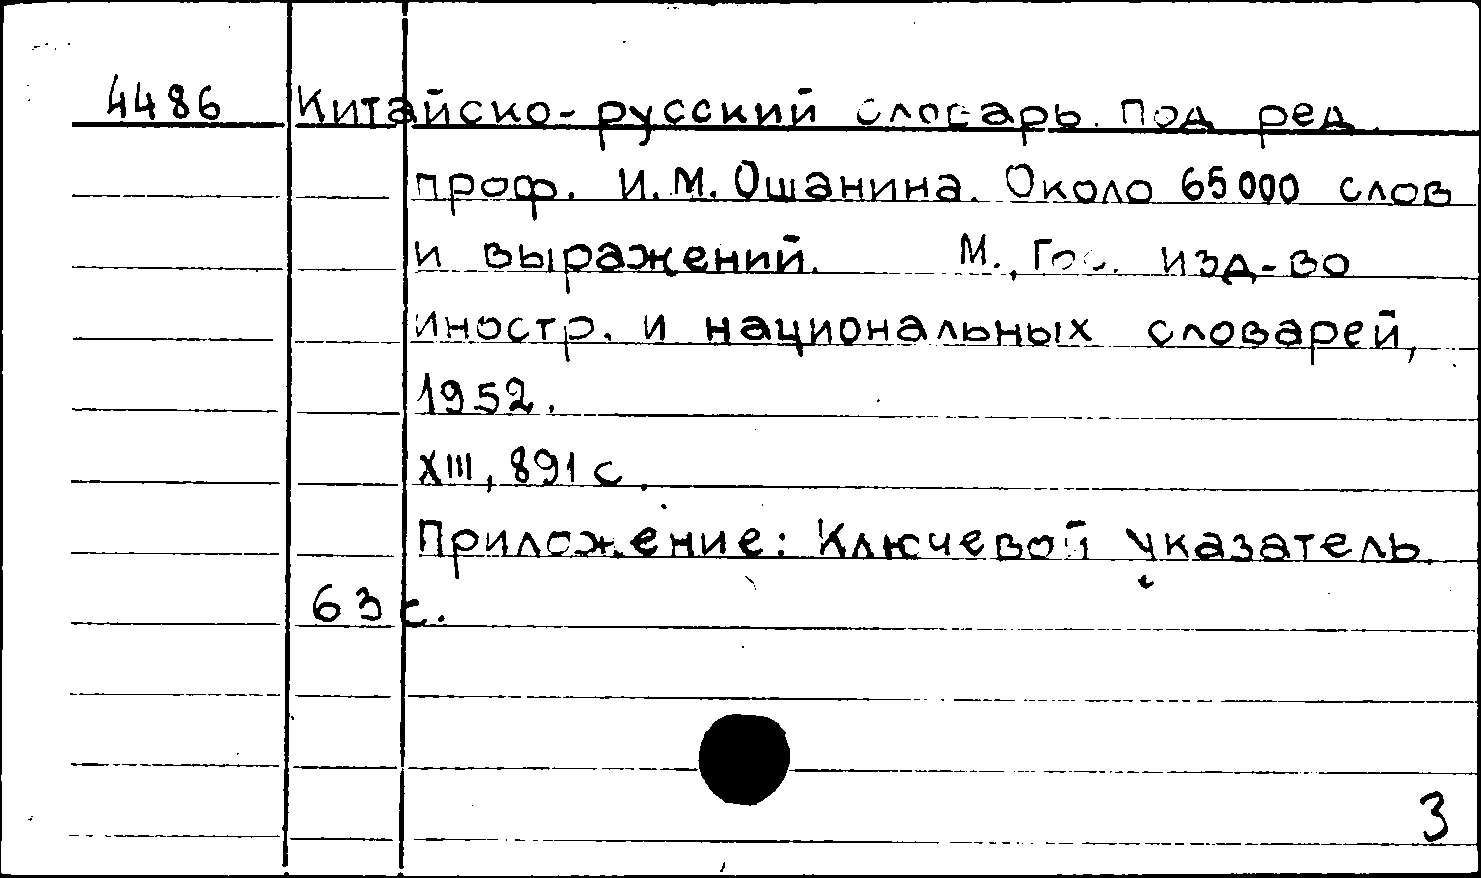 4486 Китайско-русский словарь. Под ред.
проф. И.М. Ошанина. Около 65000 слов
и выражений. М., Гос. изд-во
иностр. и национальных словарей,
1952.
XIII, 891 с.
Приложение: Ключевой указатель.
63 с.
3